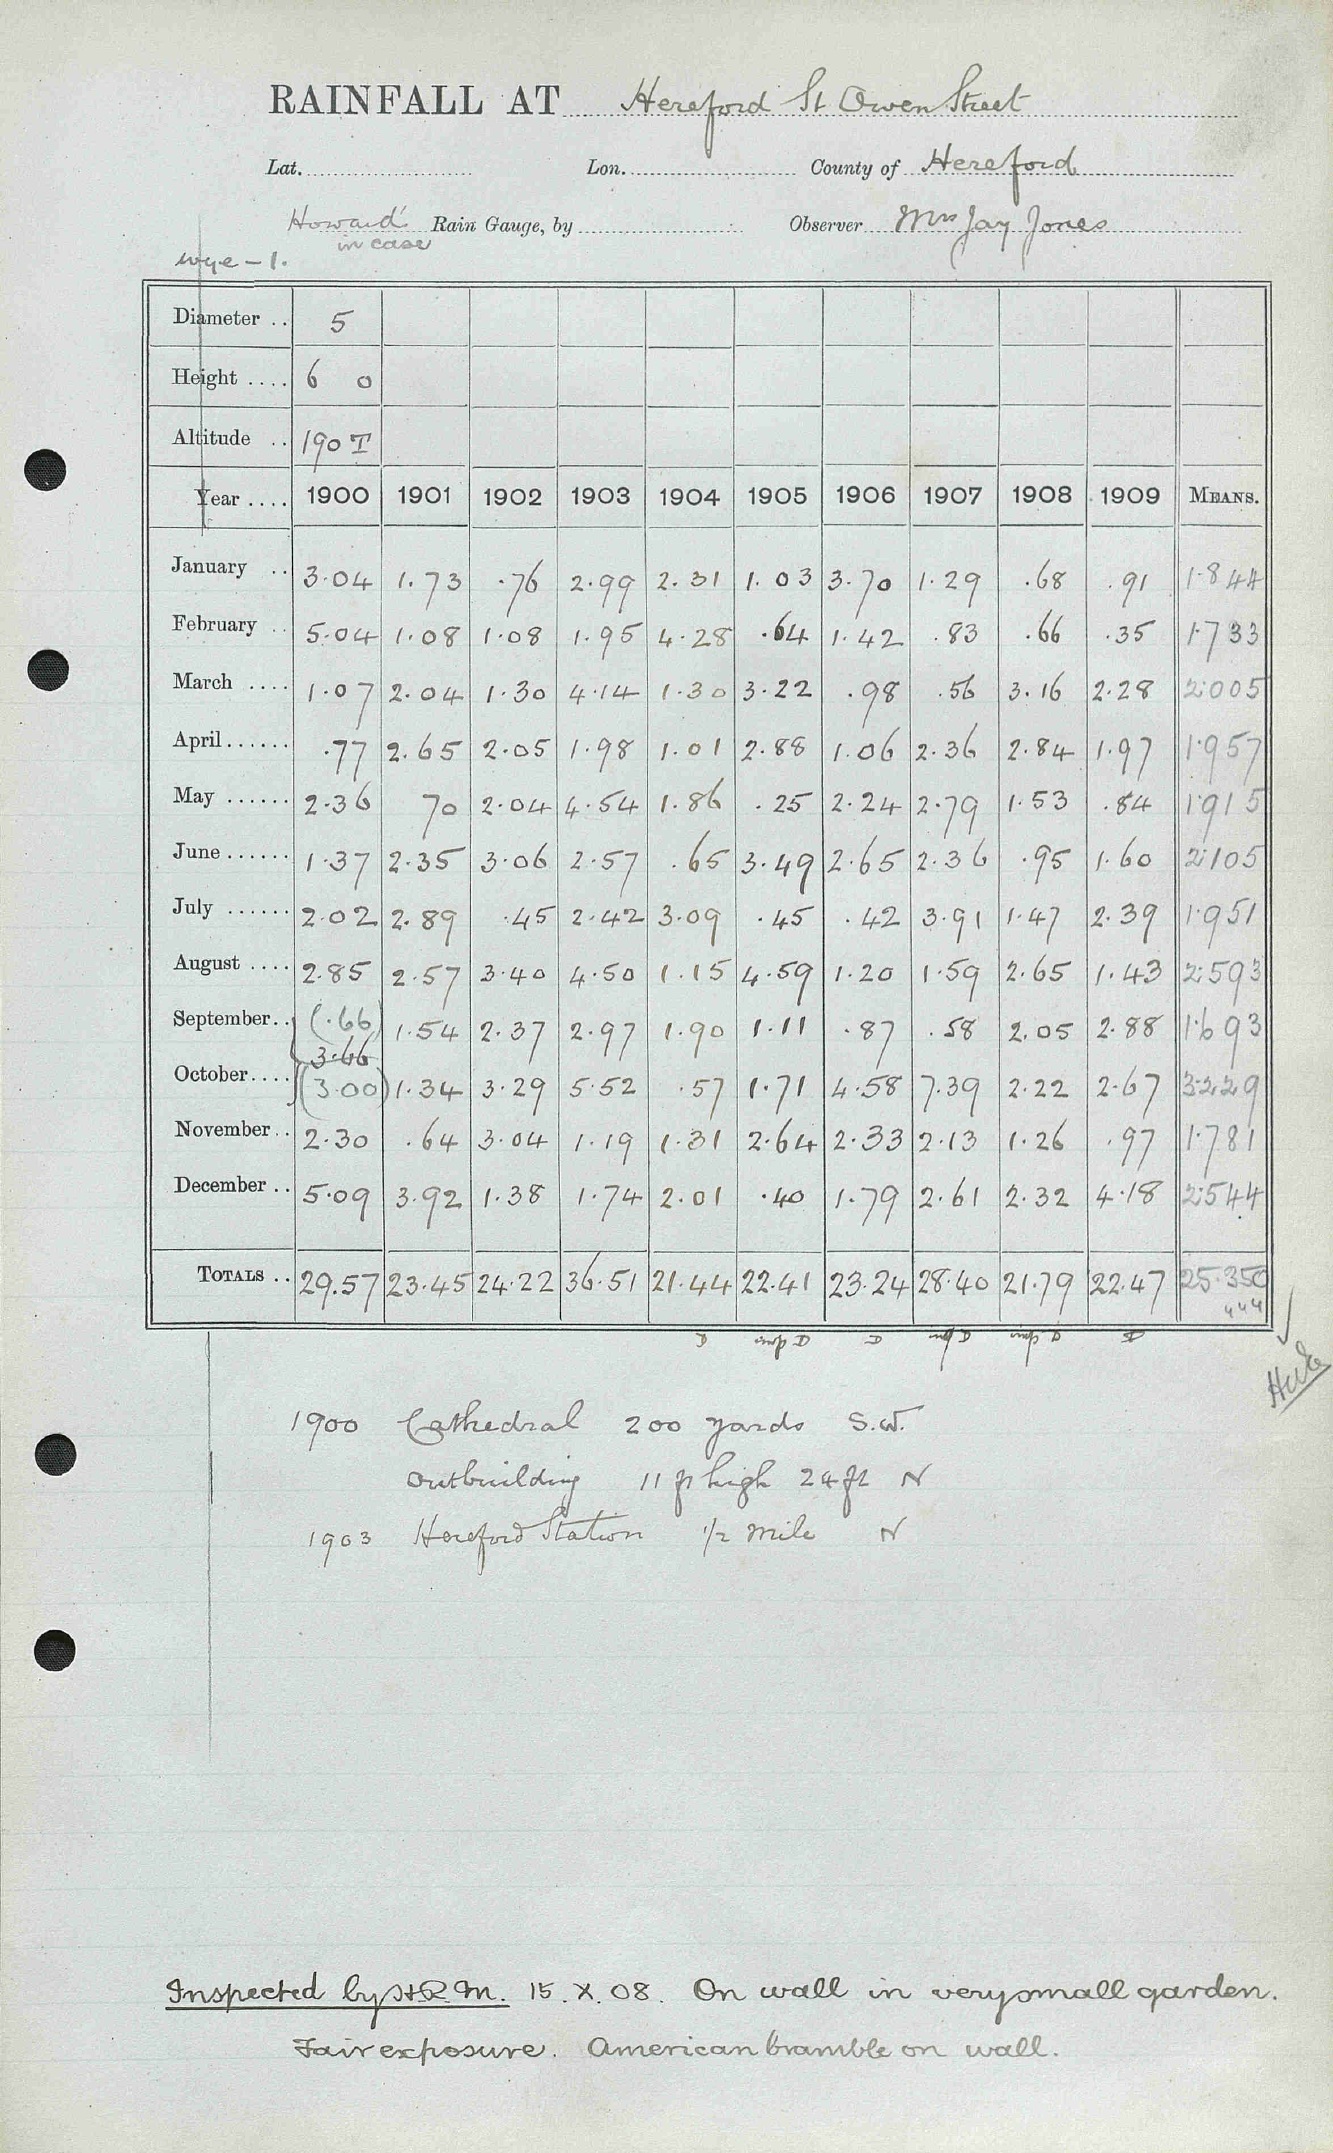 RAINFALL AT Hereford St Owen Street
Lat. Lon. County of Hereford
Howard's Rain Gauge, by Observer Mrs Jay Jones
in case
Wye - 1.
Diameter .. 5
Height .... 6 0
Altitude .. 190 T
Year .... 1900 1901 1902 1903 1904 1905 1906 1907 1908 1909 MEANS.
January .. 3.04 1.73 .76 2.99 2.31 1.03 3.70 1.29 .68 .91 1.844
February .. 5.04 1.08 1.08 1.95 4.28 .64 1.42 .83 .66 .35 1.733
March .... 1.07 2.04 1.30 4.14 1.30 3.22 .98 .56 3.16 2.28 2.005
April...... .77 2.65 2.05 1.98 1.01 2.88 1.06 2.36 2.84 1.97 1.957
May ...... 2.36 70 2.04 4.54 1.86 .25 2.24 2.79 1.53 .84 1.915
June ...... 1.37 2.35 3.06 2.57 .65 3.49 2.65 2.36 .95 1.60 2.105
July ...... 2.02 2.89 .45 2.42 3.09 .45 .42 3.91 1.47 2.39 1.951
August .... 2.85 2.57 3.40 4.50 1.15 4.59 1.20 1.59 2.65 1.43 2.593
September.. (.66) 1.54 2.37 2.97 1.90 1.11 .87 .58 2.05 2.88 1.693
3.66
October.... (3.00) 1.34 3.29 5.52 .57 1.71 4.58 7.39 2.22 2.67 3.229
November.. 2.30 .64 3.04 1.19 1.31 2.64 2.33 2.13 1.26 .97 1.781
December .. 5.09 3.92 1.38 1.74 2.01 .40 1.79 2.61 2.32 4.18 2.544
TOTALS .. 29.57 23.45 24.22 36.51 21.44 22.41 23.24 28.40 21.79 22.47 25.350
1900 Cathedral 200 yards S.W.
Outbuilding 11 ft high 24 ft N
1903 Hereford Station 1/2 mile N
Inspected by H.R.M. 15.X.08. On wall in very small garden.
Fair exposure. American bramble on wall.